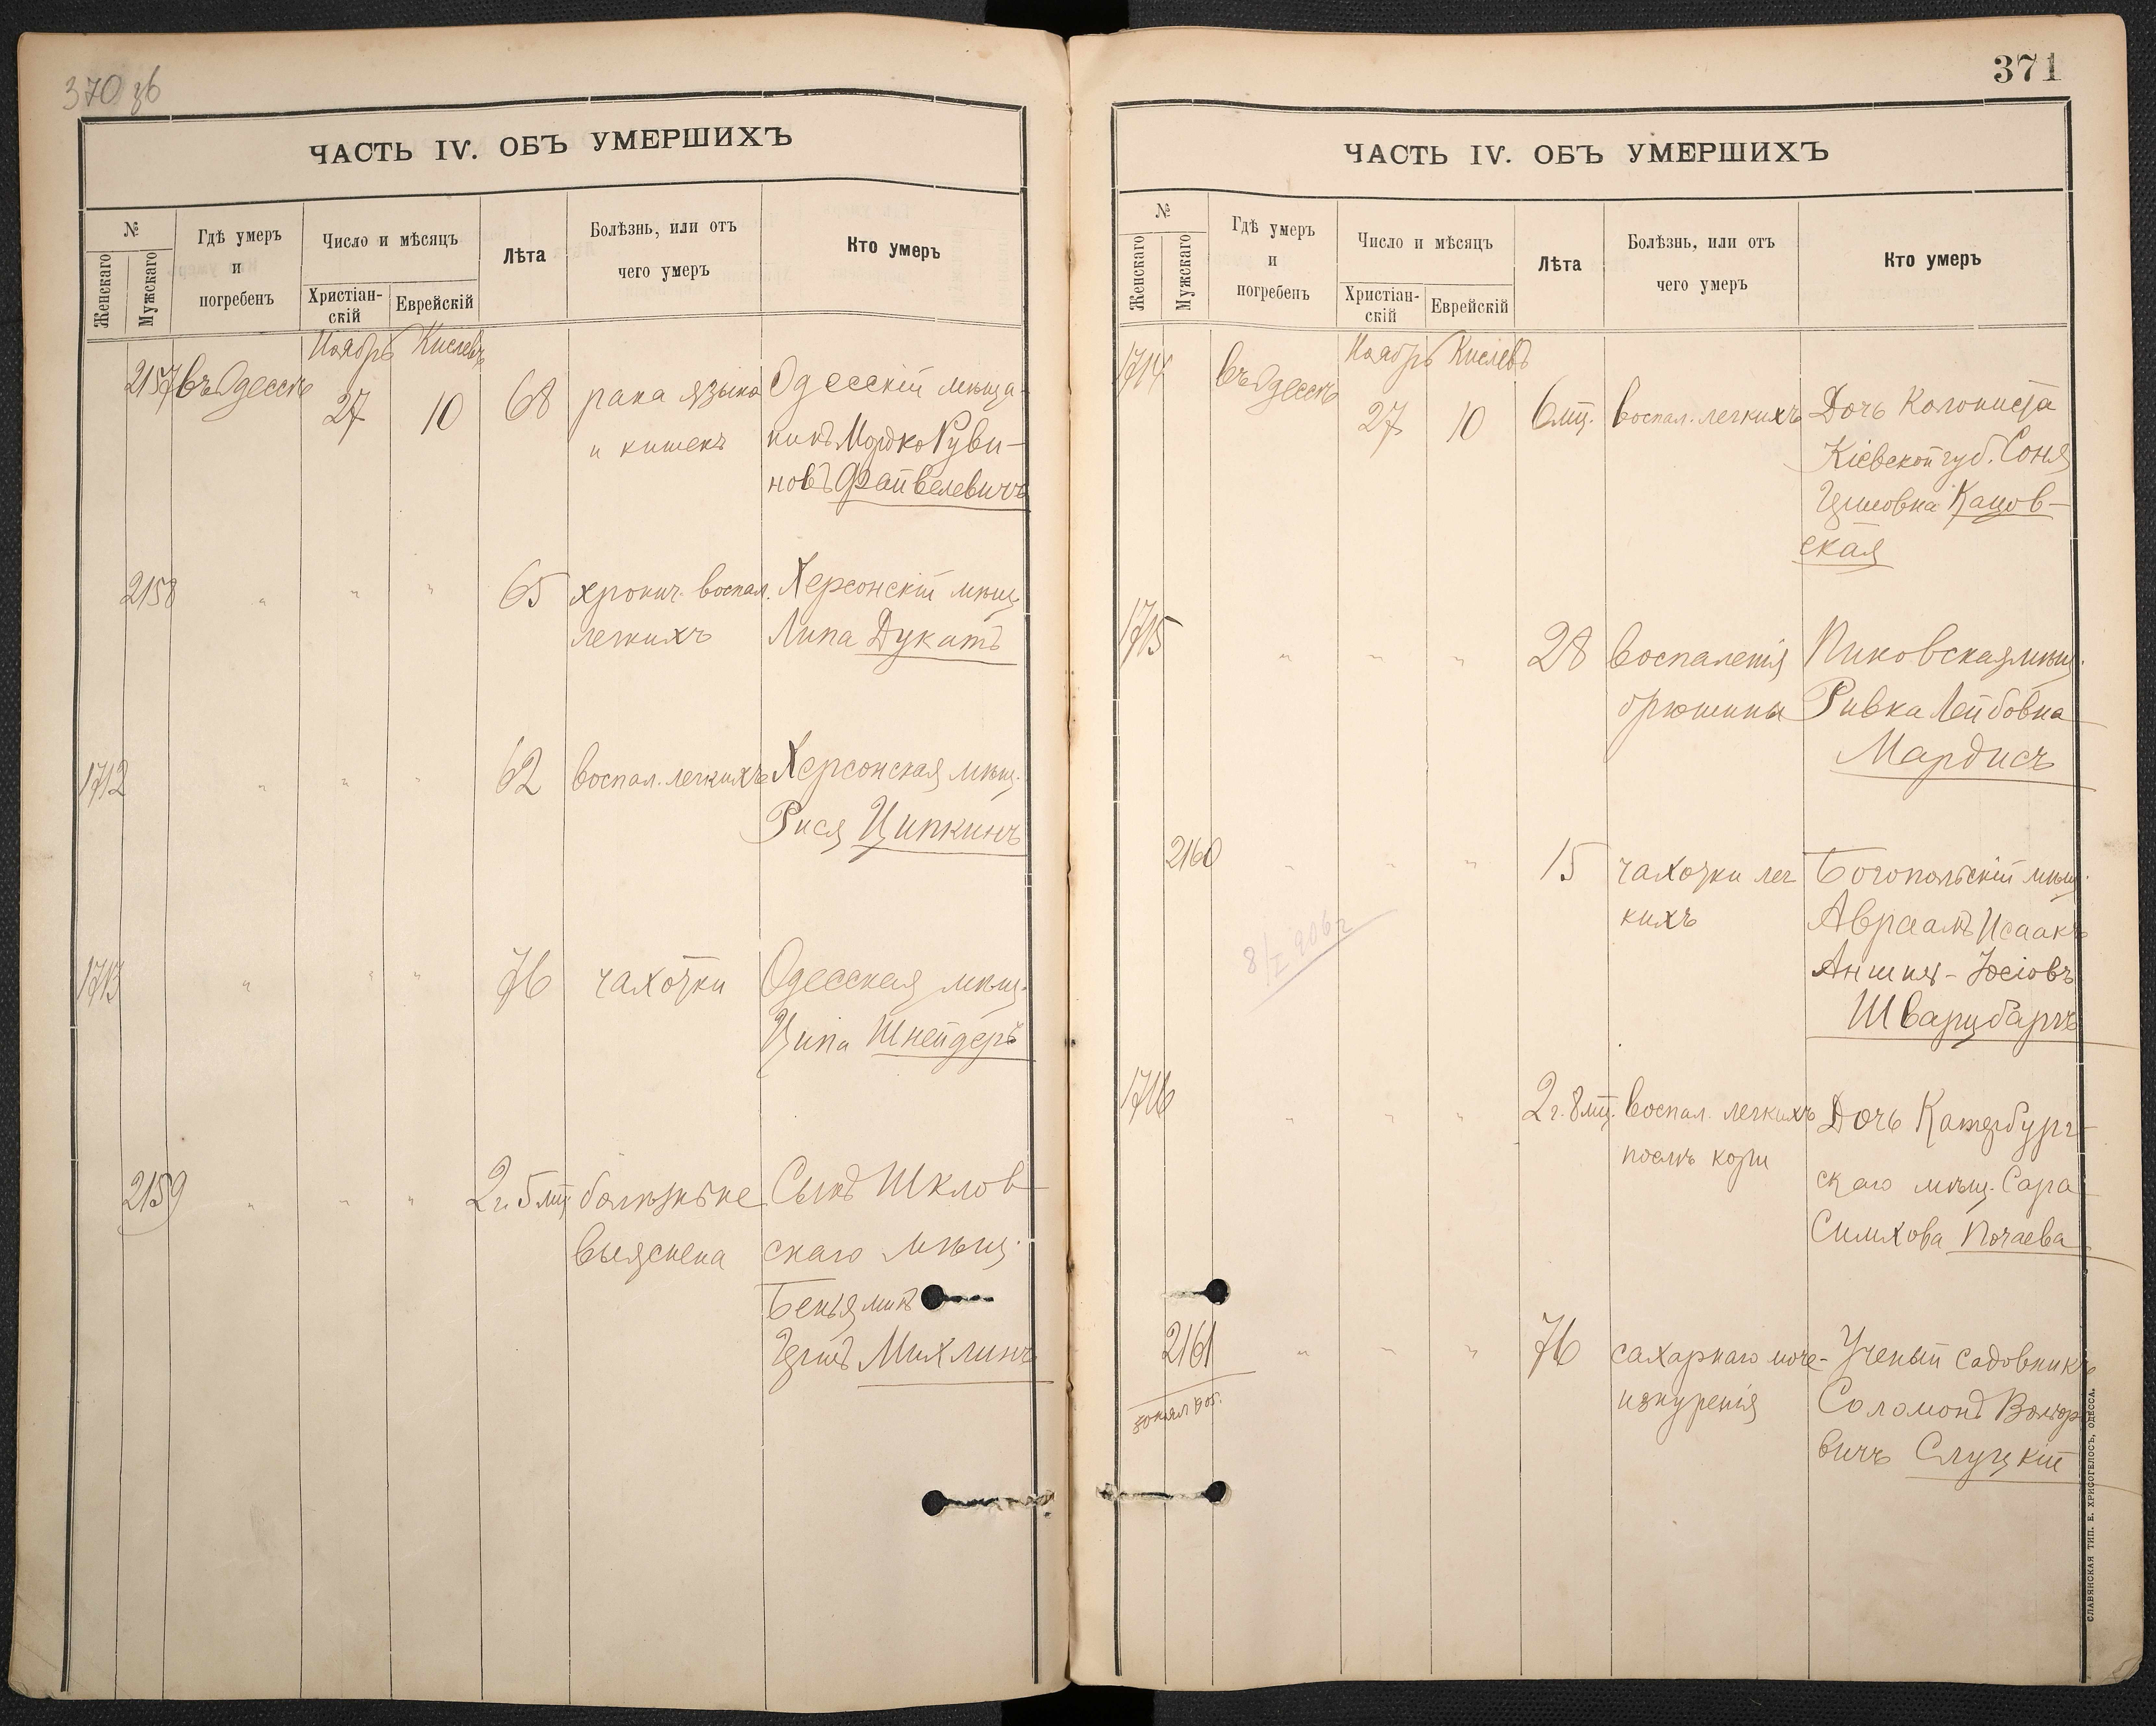 370 зв
ЧАСТЬ IV. ОБЪ УМЕРШИХЪ
№
Женскаго
Мужскаго
Гдѣ умеръ
и
погребенъ
Число и мѣсяцъ
Христіан-
скій
Еврейскій
Лѣта
Болѣзнь, или отъ
чего умеръ
Кто умеръ
Ноябрь Кислевъ
2157 въ Одессѣ 27 10 68 рака языка Одесскій мѣща-
и кишекъ нинъ Мордко Руви-
новъ Файвелевичъ
2158 " " " 65 хронич. воспал. Херсонскій мѣщ.
легкихъ Липа Дукатъ
1712 " " " 62 воспал. легкихъ Херсонская мѣщ.
Рися Ципкинъ
1713 " " " 76 чахотки Одесская мѣщ.
Ципа Шнейдеръ
2159 " " " 2 г. 5 мц. болѣзнь не Сынъ Шклов-
выяснена скаго мѣщ.
Беньяминъ
Михлинъ
371
ЧАСТЬ IV. ОБЪ УМЕРШИХЪ
№
Женскаго
Мужскаго
Гдѣ умеръ
и
погребенъ
Число и мѣсяцъ
Христіан-
скій
Еврейскій
Лѣта
Болѣзнь, или отъ
чего умеръ
Кто умеръ
Ноябрь Кислевъ
1714 въ Одессѣ 27 10 6 мц. воспал. легкихъ Дочь колониста
Кіевской губ. Соня
Кацов-
ская
1715 " " " 28 воспаленія Пиковская мѣщ.
брюшины Ривка Лейбовна
Мардисъ
2160 " " " 15 чахотки лег Богопольскій мѣщ.
кихъ Авраамъ Исаакъ
8/I 906 г.
Аншин - Іосіовъ
Шварцбардъ
1716 " " " 2 г. 8 мц. воспал. легкихъ Дочь Катербург-
послѣ кори скаго мѣщ. Сара
Симхова Почаева
2161 " " " 76 сахарнаго моче- Ученый садовникъ
1905. изнуренія Соломонъ
вичъ Слуцкій
СЛАВЯНСКАЯ ТИП. Е. ХРИСОГЕЛОСЪ, ОДЕССА.